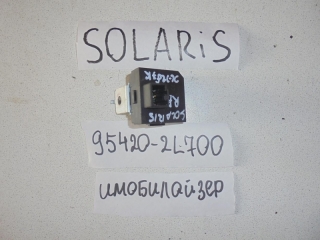 SOLARiS
SOLARIS
95420-2L700
имобилайзер